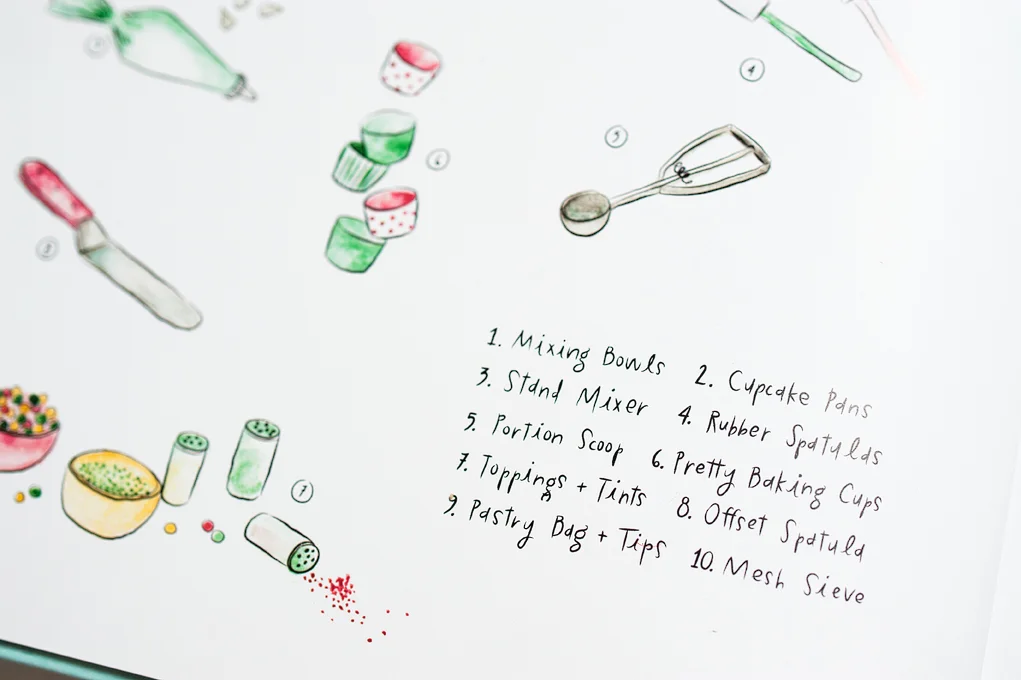 4
5
6
7
1. Mixing Bowls 2. Cupcake Pans
3. Stand Mixer 4. Rubber Spatulas
5. Portion Scoop 6. Pretty Baking Cups
7. Toppings + Tints 8. Offset Spatula
9. Pastry Bag + Tips 10. Mesh Sieve